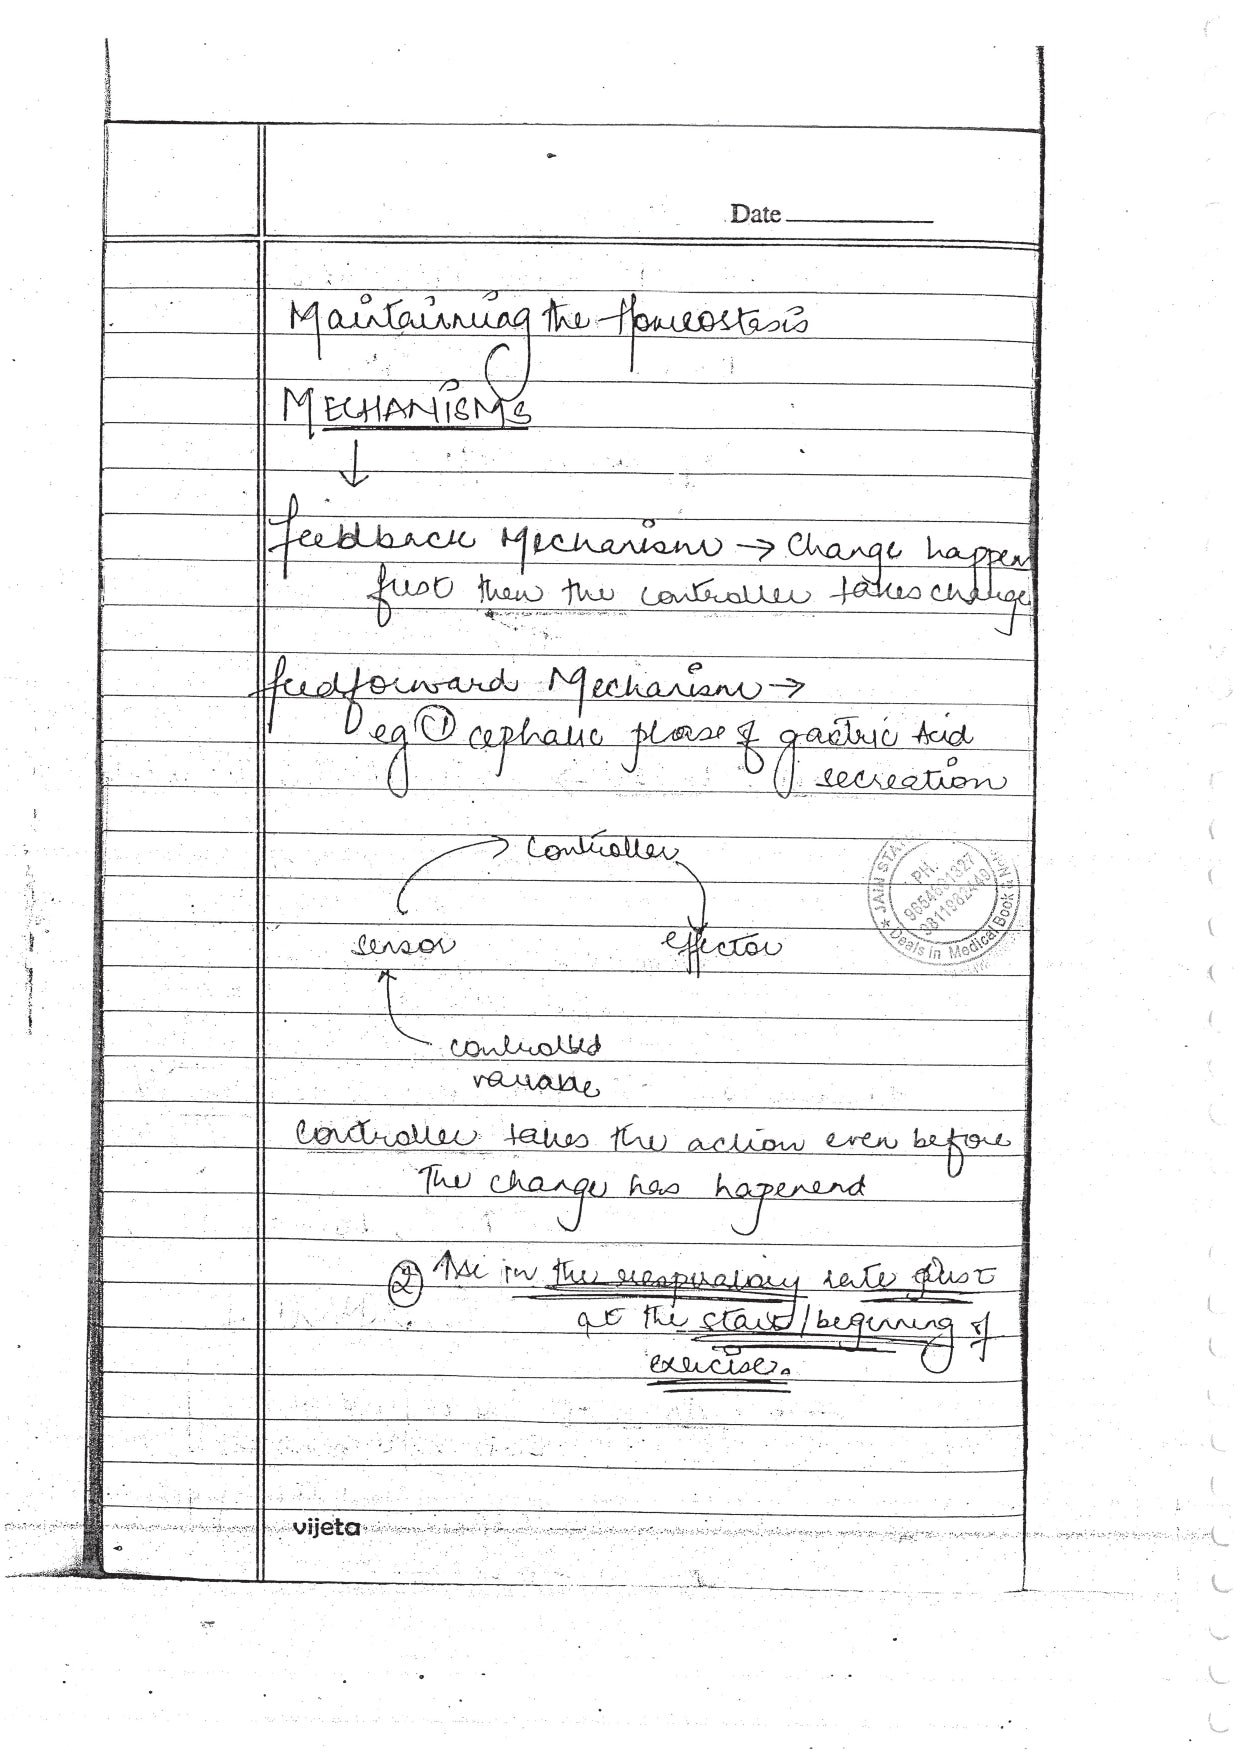 Date
Maintainning the Homeostasis
MECHANISMS
↓
feedback Mechanism → Change happen
first then the controller takes change
feedforward Mechanism →
eg ① cephalic phase of gastric Acid
secreation
Controller
sensor effector
controlled
variable
JAIN STA
PH.
9811982440
Deals in Medical Book
Controller takes the action even before
The change has hapenend
② ↑se in the respiratory rate just
at the start/beginning of
exercise.
vijeta